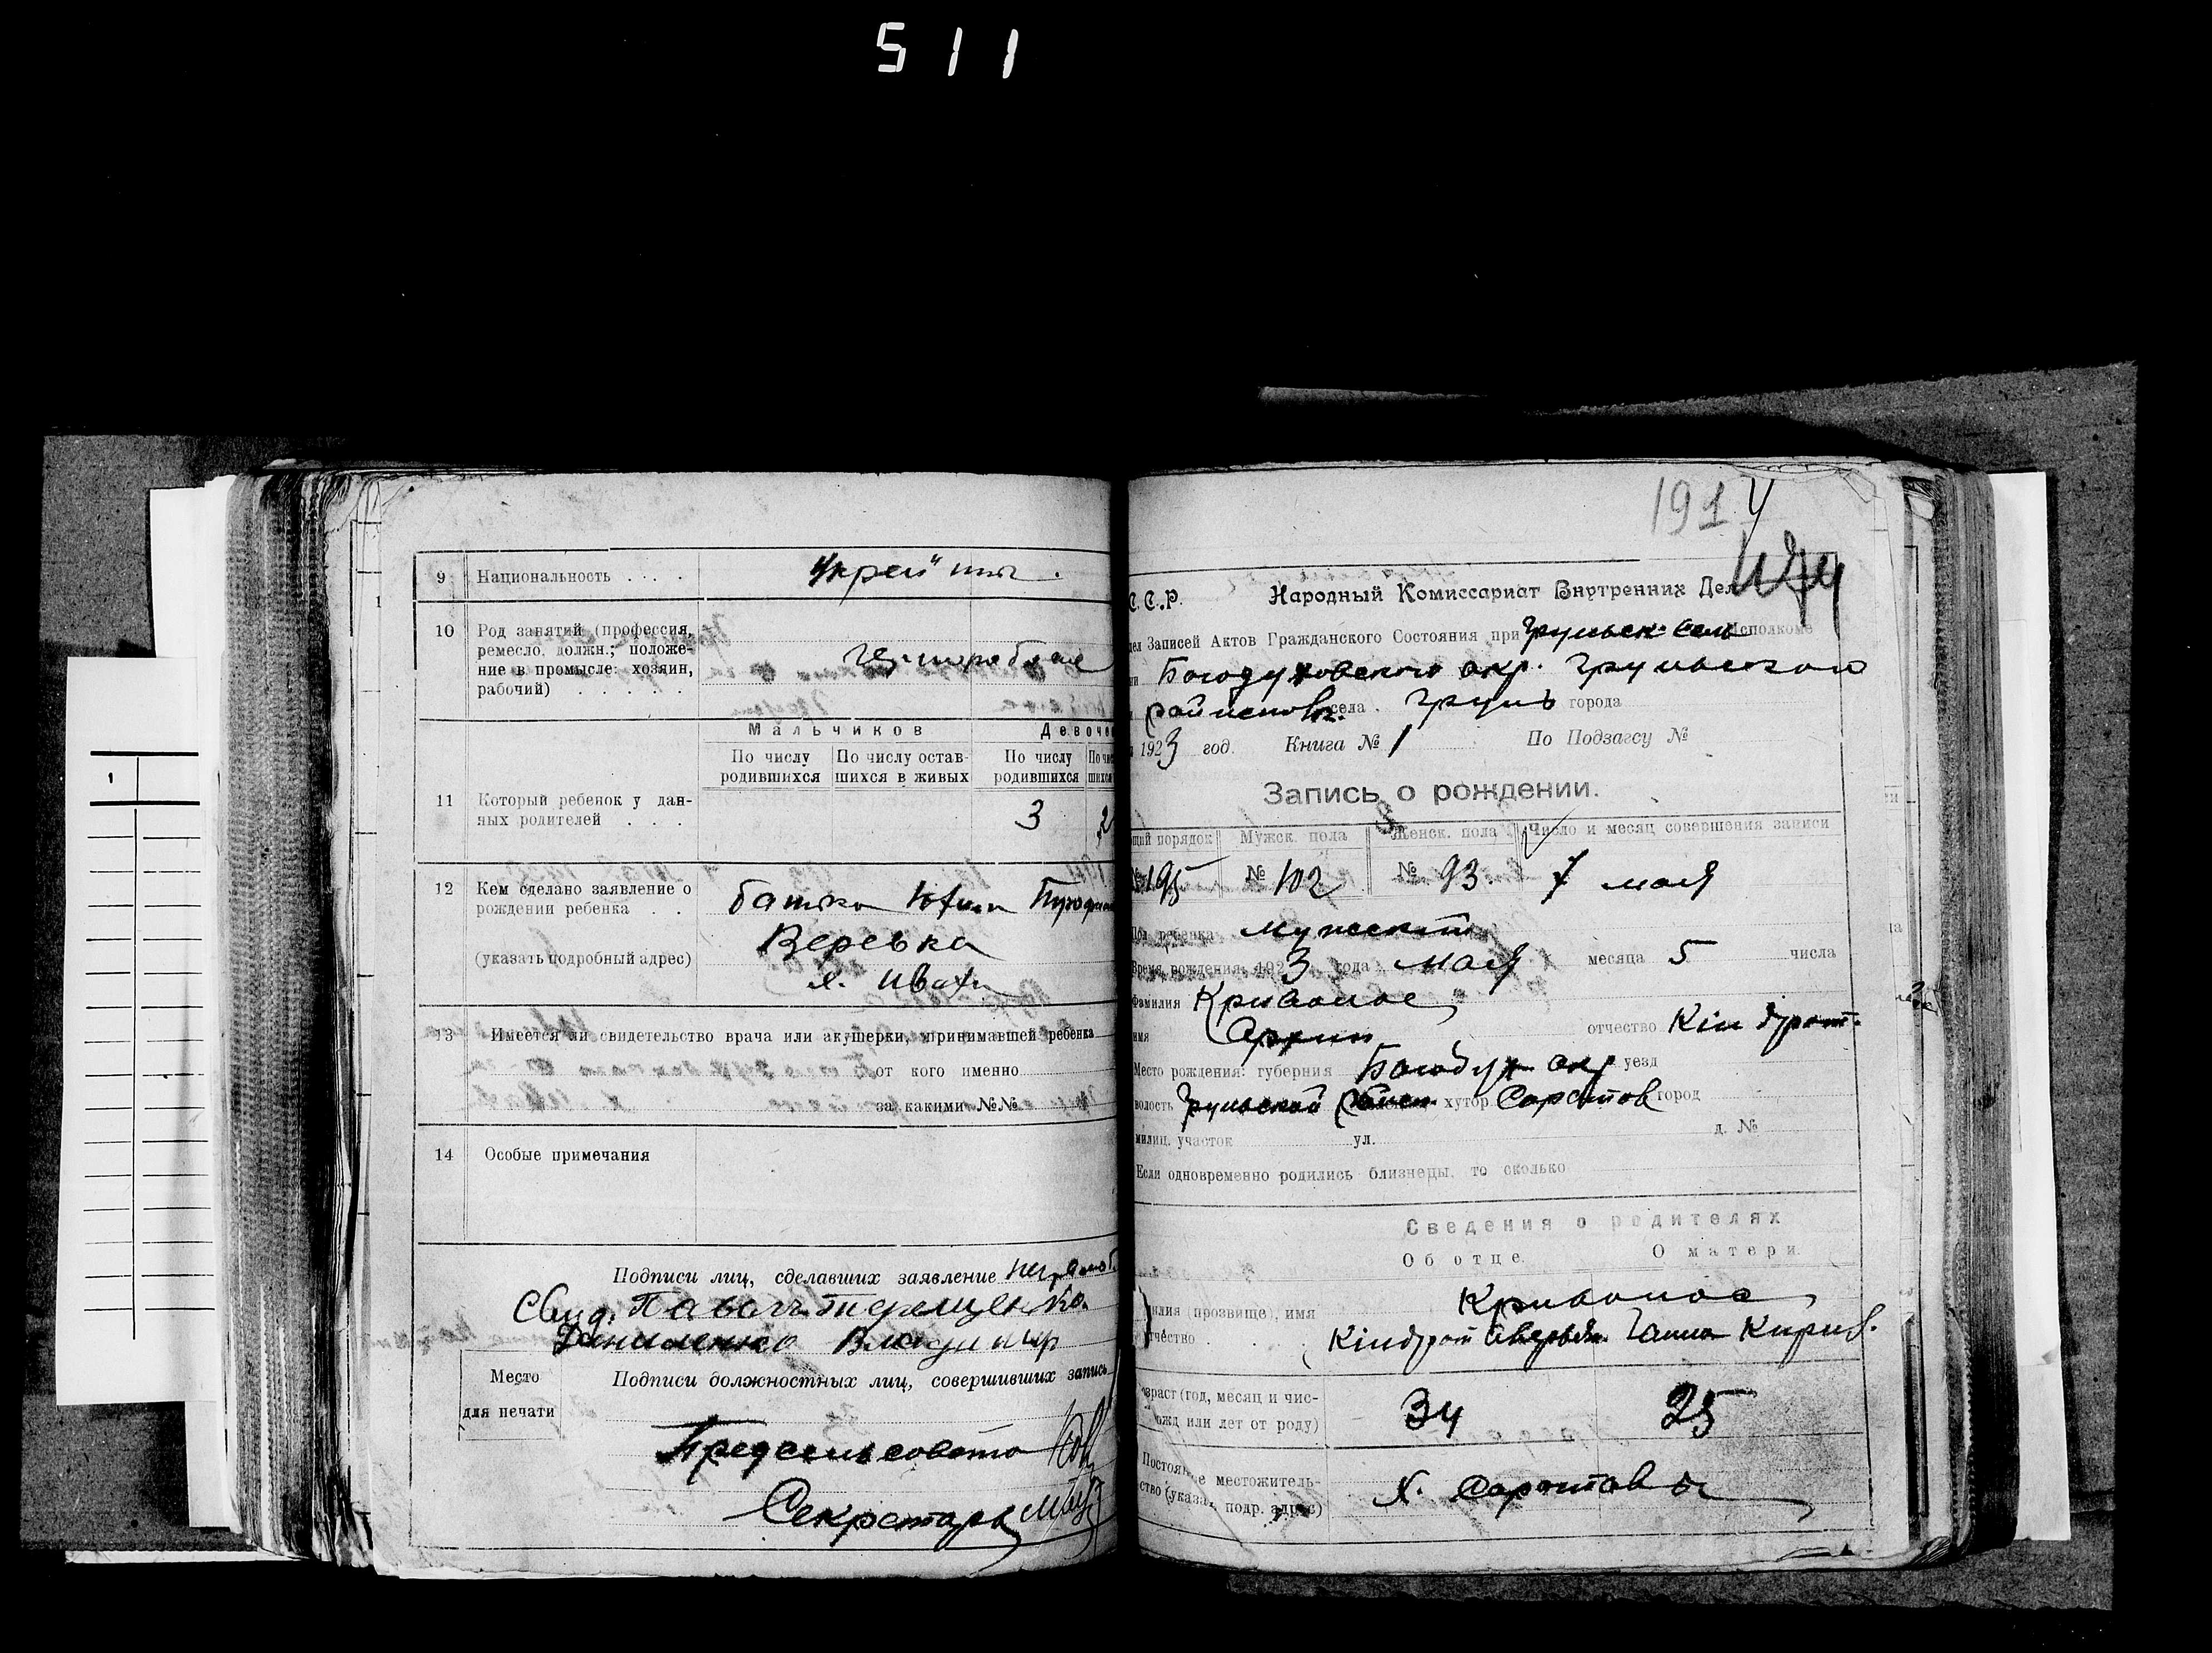 511
9 Национальность . . . .
10 Род занятий (профессия,
ремесло, должн.; положе-
ние в промысле: хозяин,
рабочий) . . . . .
Мальчиков Девоче
По числу По числу остав- По числу
родившихся шихся в живых родившихся
11 Который ребенок у дан-
ных родителей . . . 3 2
12 Кем сделано заявление о
рождении ребенка . . батько Юхим
Веревка
(указать подробный адрес)
х. Ивахи
13 Имеется ли свидетельство врача или акушерки, принимавшей ребенка
от кого именно
за какими №№
14 Особые примечания
Подписи лиц, сделавших заявление
Свид. Павол Терещенко.
Даниленко Владимир
Место Подписи должностных лиц, совершивших запись
для печати
Предсельсовета
Секретарь
191
С.С.Р. Народный Комиссариат Внутренних Дел
дел Записей Актов Гражданского Состояния при Груньск. сель Исполкоме
Богодуховского окр. Груньского
села Грунь города
1923 год. Книга № 1 По Подзагсу №
Запись о рождении.
щий порядок Мужск. пола Женск. пола Число и месяц совершения записи
№ 195 № 102 № 93. 7 мая
Пол ребенка мужской
Время рождения: 1923 года мая месяца 5 числа
Фамилия Кривонос
имя отчество Кіндрат.
Место рождения: губерния Богодух окр уезд
волость Груньской хутор Саратов город
милиц. участок ул. д. №
Если одновременно родились близнецы, то сколько
Сведения о родителях
Об отце. О матери.
Кривонос
илия (прозвище), имя
тчество . Кіндрат Ганна Кирил.
зраст (год, месяц и чис-
ожд или лет от роду) 34 25
Постоянное местожитель-
ство (указать подр. адрес) х. Саратов